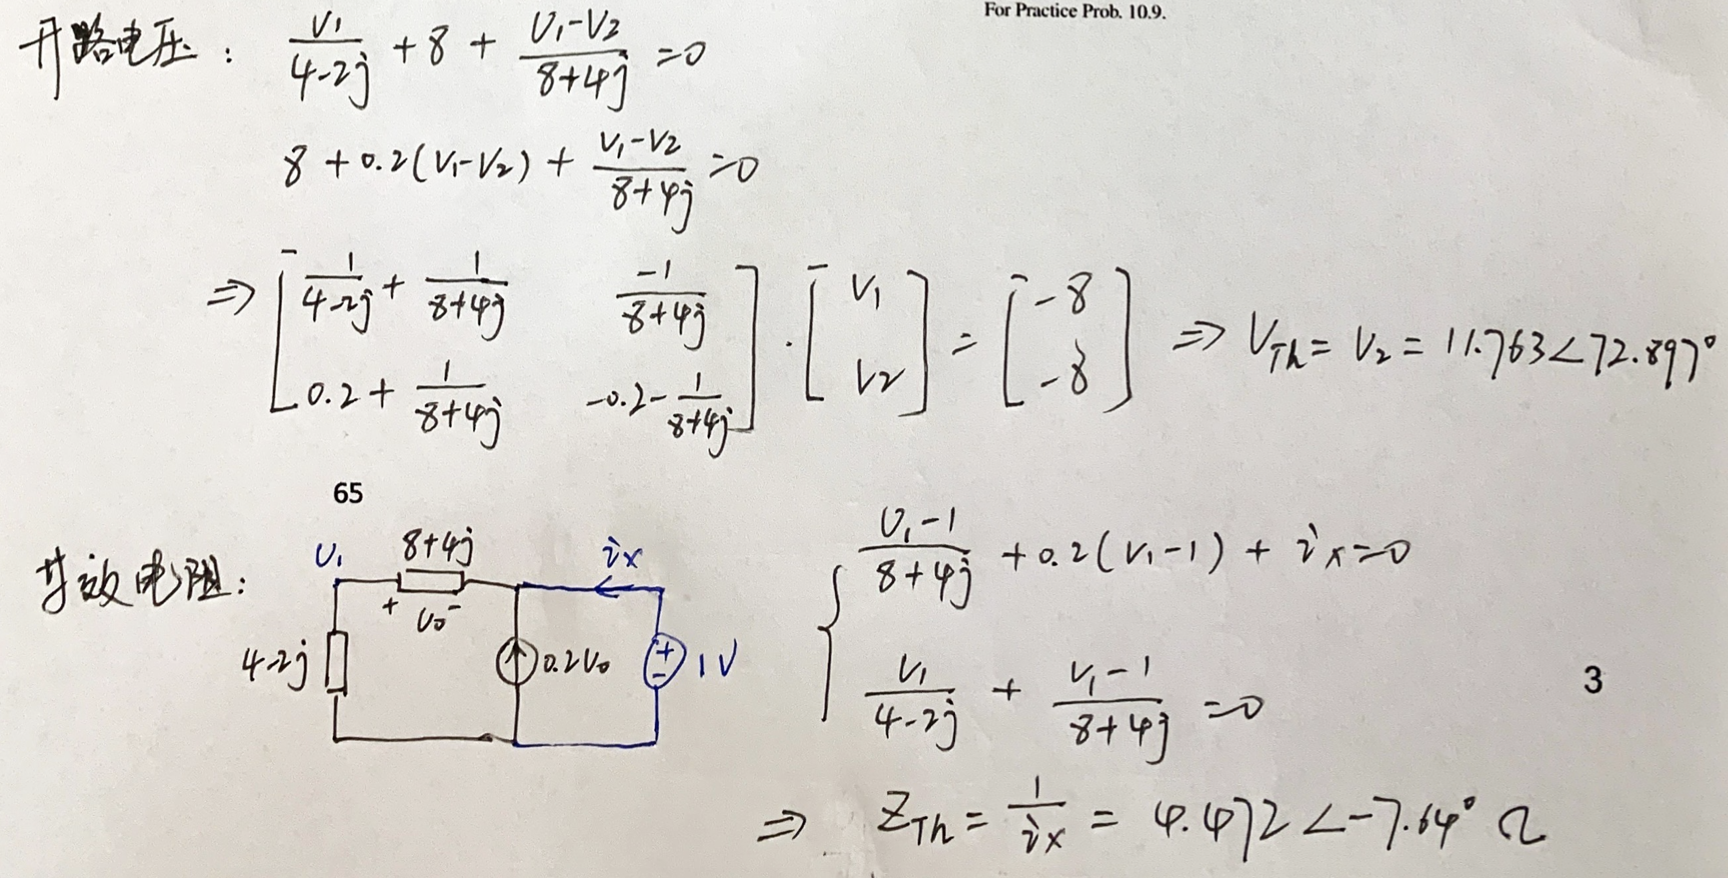 For Practice Prob. 10.9.
开路电压: V₁/(4-2j) + 8 + (V₁-V₂)/(8+4j) = 0
8 + 0.2(V₁-V₂) + (V₁-V₂)/(8+4j) = 0
⇒ [1/(4-2j) + 1/(8+4j)  -1/(8+4j); 0.2 + 1/(8+4j)  -0.2 - 1/(8+4j)] · [V₁; V₂] = [-8; -8] ⇒ V_Th = V₂ = 11.763∠72.897°
65
等效电阻:
V₁ 8+4j ix
+ V₀ -
4-2j 0.2V₀ + - 1V
(V₁-1)/(8+4j) + 0.2(V₁-1) + ix = 0
V₁/(4-2j) + (V₁-1)/(8+4j) = 0
3
⇒ Z_Th = 1/ix = 4.472∠-7.64° Ω